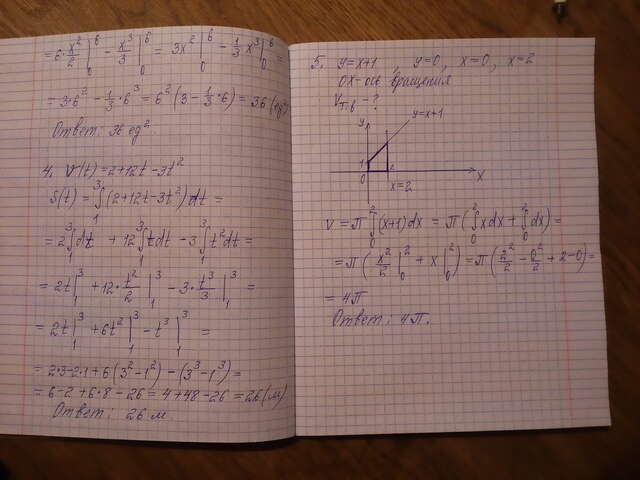 = 6·x²/2 |₀⁶ − x³/3 |₀⁶ = 3x² |₀⁶ − 1/3 x³ |₀⁶ =
= 3·6² − 1/3·6³ = 6²(3 − 1/3·6) = 36 (ед²)
Ответ: 36 ед².
4. V(t) = 2+12t−3t²
S(t) = ∫₁³ (2+12t−3t²) dt =
= 2∫₁³ dt + 12∫₁³ t dt − 3∫₁³ t² dt =
= 2t |₁³ + 12·t²/2 |₁³ − 3·t³/3 |₁³ =
= 2t |₁³ + 6t² |₁³ − t³ |₁³ =
= 2·3−2·1 + 6(3²−1²) − (3³−1³) =
= 6−2+6·8−26 = 4+48−26 = 26 (м)
Ответ: 26 м.
5. y=x+1, y=0, x=0, x=2
OX-ось вращения
Vт.в − ?
y
y=x+1
1
0
2
x
x=2
V = π ∫₀² (x+1) dx = π (∫₀² x dx + ∫₀² dx) =
= π ( x²/2 |₀² + x |₀² ) = π ( 2²/2 − 0²/2 + 2−0 ) =
= 4π
Ответ: 4π.